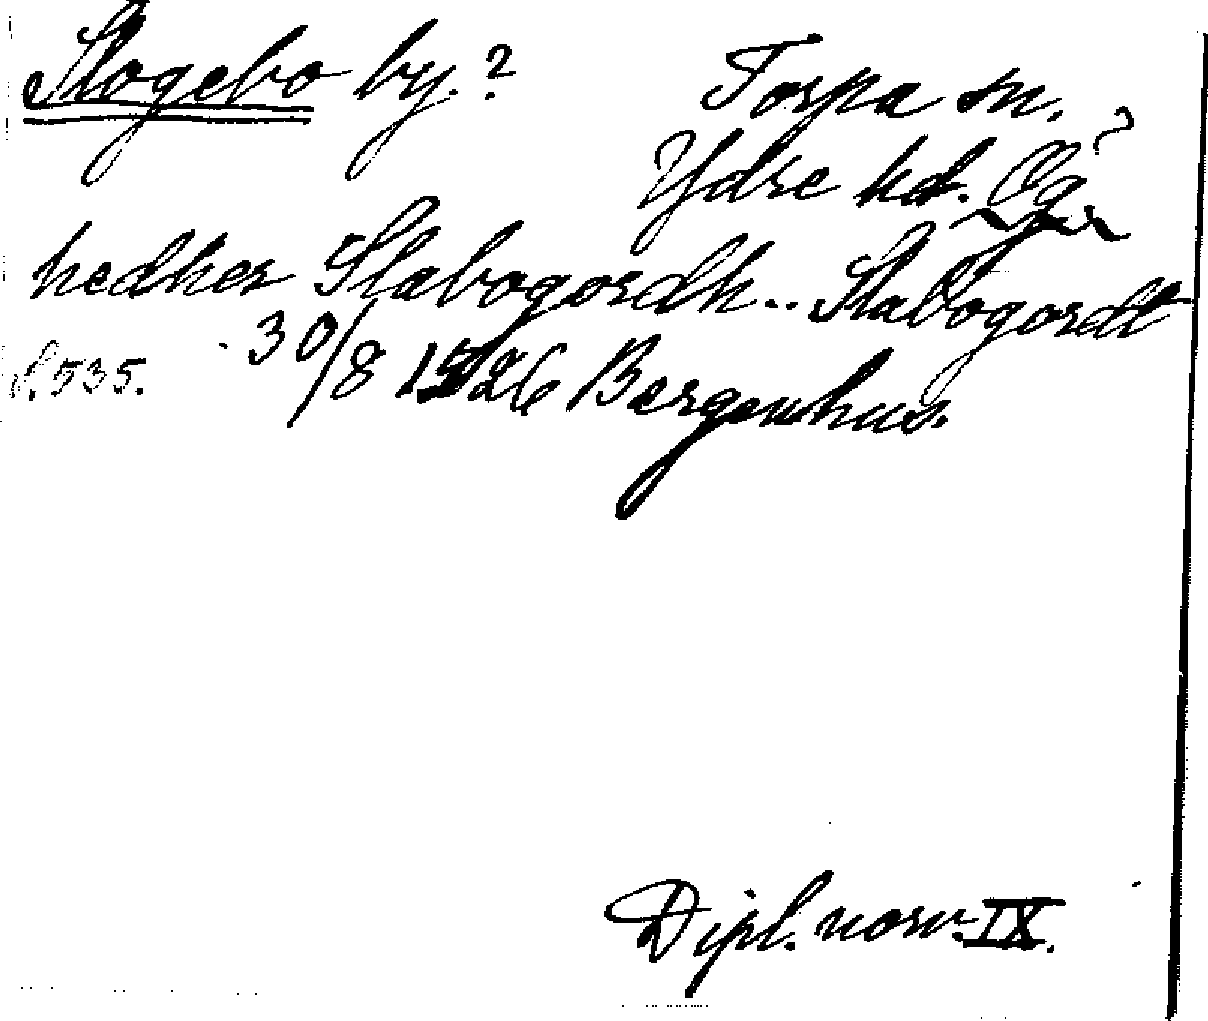 Slogebo by.?
Torpa sn.
Ydre hd. Ög. ?
hedher Slabogordh.. Slabogordt
S. 535. 30/8 1526 Bergenhus.
Dipl. norv. IX.